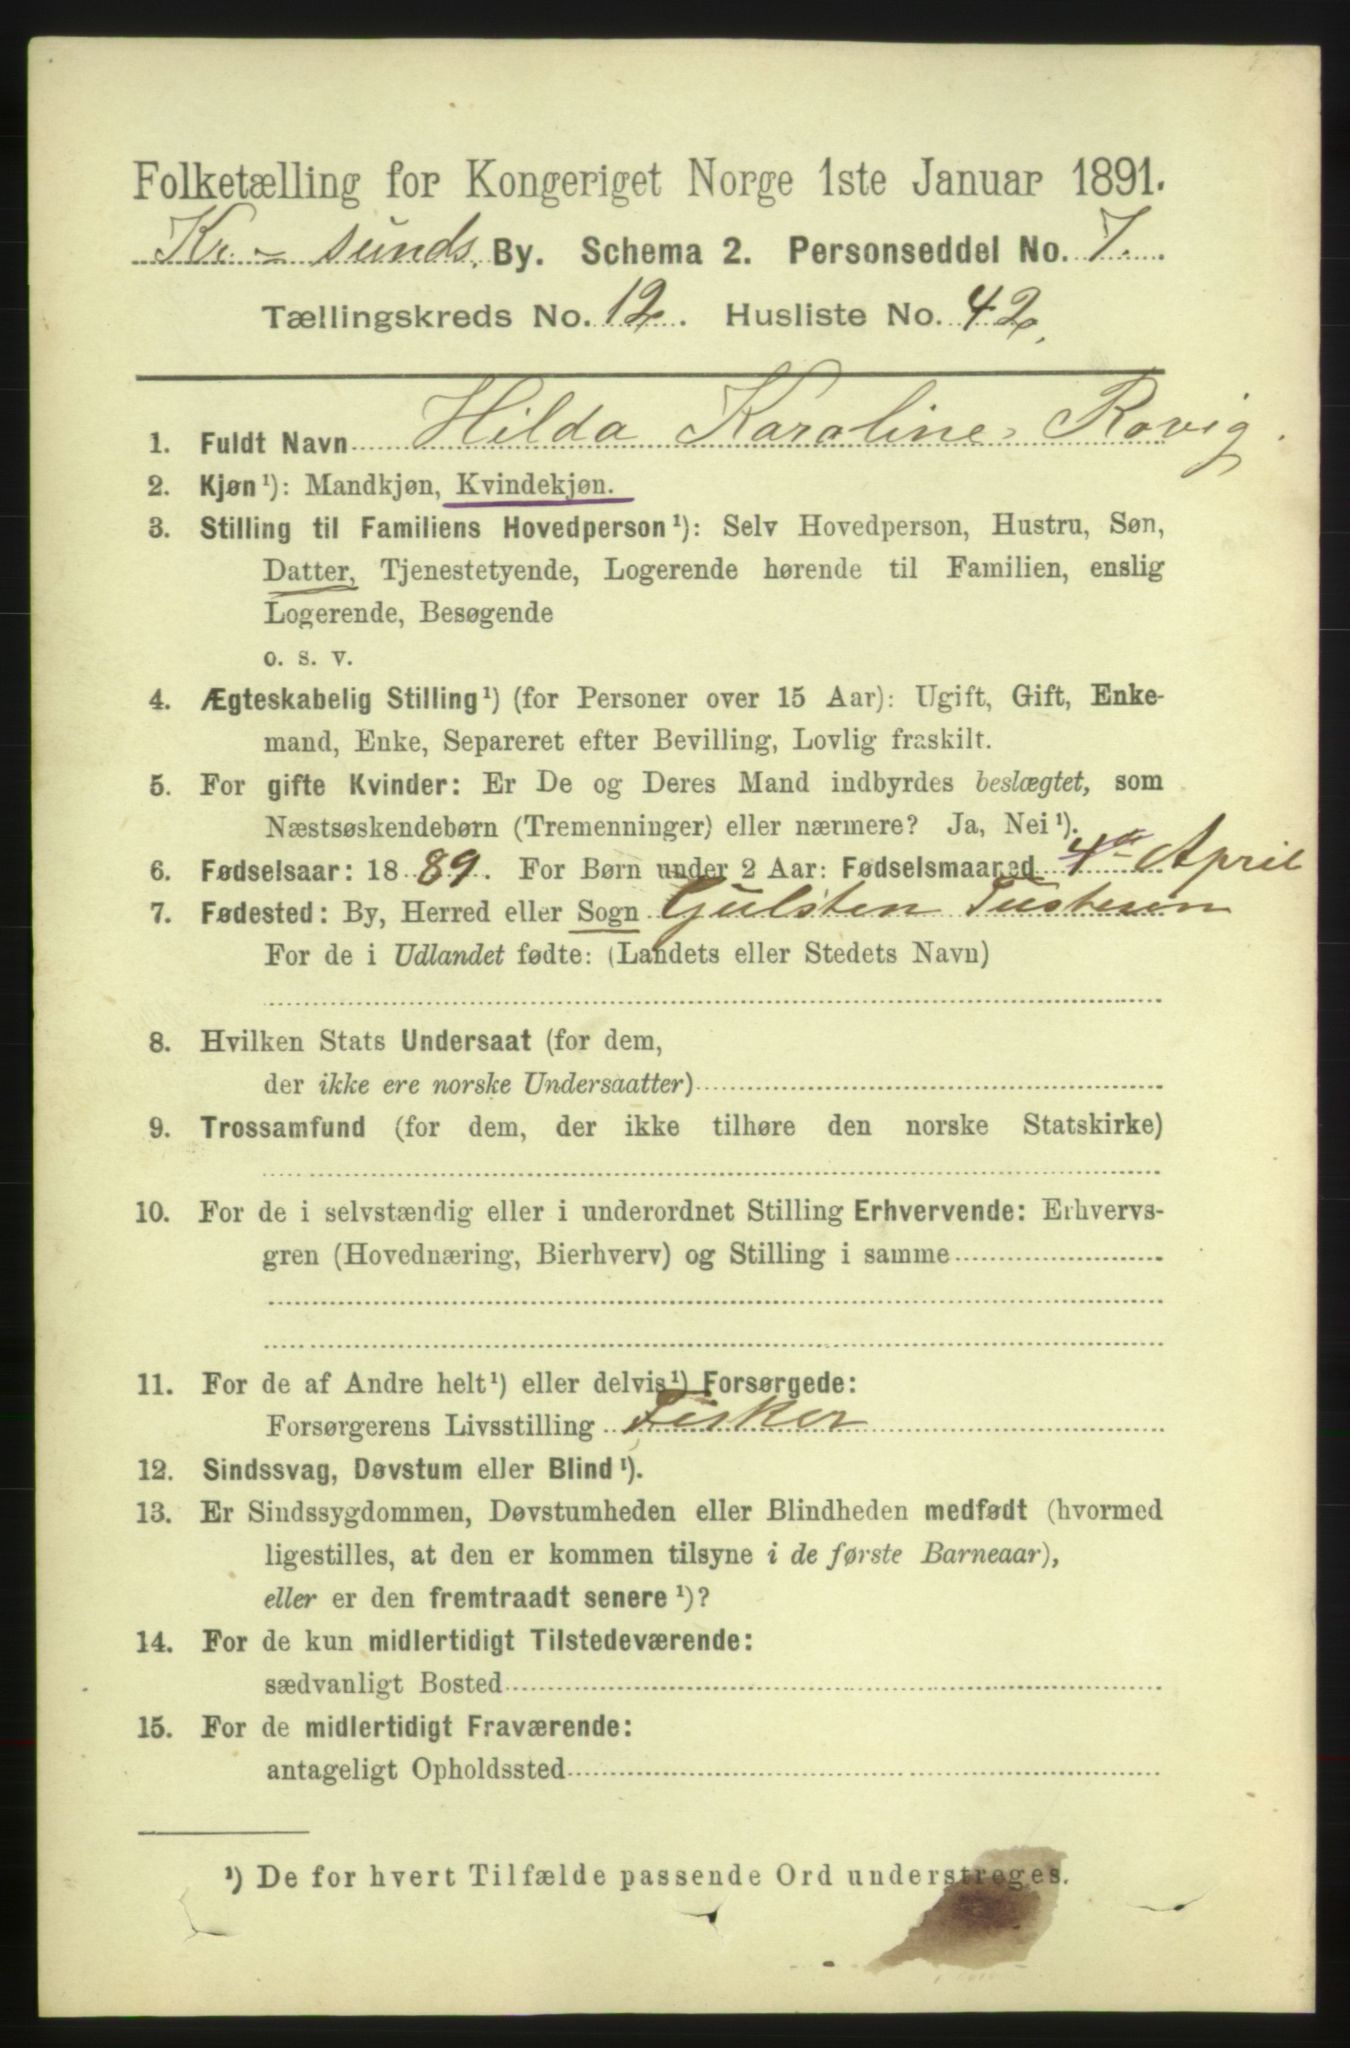 Folketælling for Kongeriget Norge 1ste Januar 1891.
Kr.-sunds. By. Schema 2. Personseddel No. 7.
Tællingskreds No. 12. Husliste No. 42.
1. Fuldt Navn Hilda Karoline Rovig.
2. Kjøn¹): Mandkjøn, Kvindekjøn.
3. Stilling til Familiens Hovedperson¹): Selv Hovedperson, Hustru, Søn,
Datter, Tjenestetyende, Logerende hørende til Familien, enslig
Logerende, Besøgende
o. s. v.
4. Ægteskabelig Stilling¹) (for Personer over 15 Aar): Ugift, Gift, Enke-
mand, Enke, Separeret efter Bevilling, Lovlig fraskilt.
5. For gifte Kvinder: Er De og Deres Mand indbyrdes beslægtet, som
Næstsøskendebørn (Tremenninger) eller nærmere? Ja, Nei¹).
6. Fødselsaar: 1889. For Børn under 2 Aar: Fødselsmaaned 4de April
7. Fødested: By, Herred eller Sogn Gulsten Tusteren
For de i Udlandet fødte: (Landets eller Stedets Navn)
8. Hvilken Stats Undersaat (for dem,
der ikke ere norske Undersaatter)
9. Trossamfund (for dem, der ikke tilhøre den norske Statskirke)
10. For de i selvstændig eller i underordnet Stilling Erhvervende: Erhvervs-
gren (Hovednæring, Bierhverv) og Stilling i samme
11. For de af Andre helt¹) eller delvis¹) Forsørgede:
Forsørgerens Livsstilling Fisker
12. Sindssvag, Døvstum eller Blind¹).
13. Er Sindssygdommen, Døvstumheden eller Blindheden medfødt (hvormed
ligestilles, at den er kommen tilsyne i de første Barneaar),
eller er den fremtraadt senere¹)?
14. For de kun midlertidigt Tilstedeværende:
sædvanligt Bosted
15. For de midlertidigt Fraværende:
antageligt Opholdssted
¹) De for hvert Tilfælde passende Ord understreges.